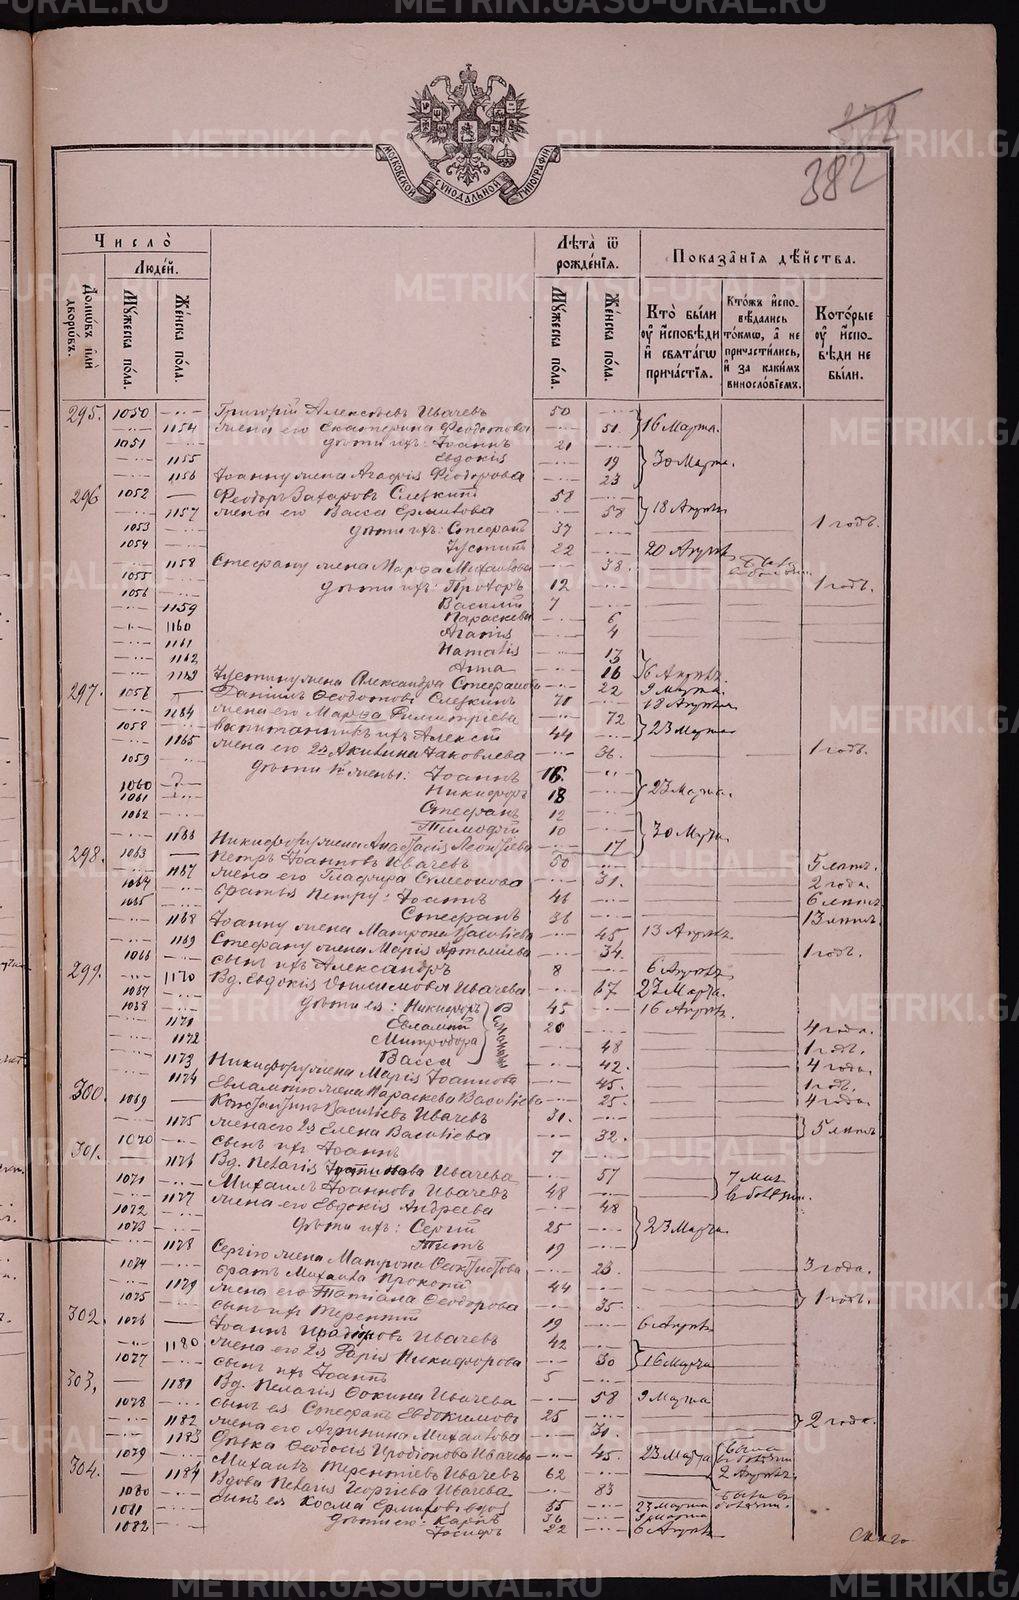 METRIKI.GASO-URAL.RU
272
382
МОСКОВСКОЙ СѴНОДАЛЬНОЙ ТИПОГРАФІИ
Число̀
Люде́й.
Домѡ́въ и҆лѝ дворѡ́въ.
Мꙋ́жеска по́ла.
Же́нска по́ла.
Лѣ́та ѿ рожде́нїѧ.
Мꙋ́жеска по́ла.
Же́нска по́ла.
Показа̑нїѧ дѣ́йства.
Кто̀ бы́ли ᲂу҆ и҆́сповѣди и҆ свѧта́гѡ прича́стїѧ.
Кто́жъ и҆спо-вѣ́дались то́кмѡ, а҆ не причасти́лись, и҆ за каки́мъ винослѡ́вїемъ.
Кото́рые ᲂу҆ и҆́спо-вѣди не бы́ли.
295. 1050 Григорій Алексѣевъ Ивачевъ 50
1154 Жена его Екатерина Ѳеодотова 51 16 Марта.
1051 Дѣти ихъ: Іоаннъ 21
1155 Евдокія 19 30 Марта.
1156 Іоанну жена Агафія Ѳеодорова 23
296 1052 Ѳеодоръ Захаровъ Слецкій 58
1157 Жена его Васса Ермилова 58 18 Апрѣл
1053 Дѣти ихъ: Стефанъ 37 1 годъ.
1054 Іустинъ 22 20 Апрѣл
1158 Стефану жена Марѳа Михайлова 38.
1055 Дѣти ихъ: Прохоръ 12 1 годъ.
1056 Василій 7
1159 Параскева 6
1160 Агапія 4
1161 Наталія 13
1162 Анна
1163 Іустину жена Александра Стефанова 22 9 Марта.
297. Даніилъ Ѳеодотовъ Слецкинъ 70 18 Апрѣля
1164 Жена его Марѳа Димитріева 72 23 Марта
1058 Воспитанникъ ихъ Алексій 44 1 годъ.
1165 Жена его 2я Акилина Іаковлева 36.
1059 Дѣти 1й жены: Іоаннъ 16.
1060 Никифоръ 18 23 Марта.
1061 Стефанъ 12
1062 Тимофій 10 30 Марта
1166 Никифору жена Анастасія Леонтіева 17
298. 1063 Петръ Іоанновъ Ивачевъ 50 5 лѣтъ.
1167 Жена его Глафира Сѵмеонова 31. 2 года.
1064 братья Петру: Іоаннъ 46 6 лѣтъ
1065 Стефанъ 36 13 лѣтъ
1168 Іоанну жена Матрона Васильева 45 13 Апрѣл
1169 Стефану жена Марія Артемьева 34. 1 годъ.
1066 сынъ ихъ Александръ 8 6 Апрѣля
299. 1170 Вд. Евдокія Онисимова Ивачева 67 27 Марта.
1067 дѣти ея: Никифоръ 45 16 Апрѣл.
1068 Евлампій 28 4 года.
1171 Митродора 48 1 годъ.
1172 Васса 42. 4 года.
1173 Никифору жена Марія Іоаннова 45. 1 годъ.
1174 Евлампію жена Параскева Васильева 25. 4 года.
300. 1069 Константинъ Васильевъ Ивачевъ 31.
1175 жена его 2я Елена Васильева 32. 5 лѣтъ
1070 сынъ ихъ Іоаннъ 7
301. 1176 Вд. Пелагія Іустинова Ивачева 57 7 Мая въ болѣзни.
1071 Михаилъ Іоанновъ Ивачевъ 48
1177 Жена его Евдокія Андреева 48
1072 Дѣти ихъ: Сергій 25 23 Марта.
1073 Титъ 19
1178 Сергію жена Матрона Саватіева 23. 3 года.
1074 братъ Михаила Прокопій 44
1179 Жена его Татіана Ѳеодорова 35. 1 годъ.
1075 сынъ ихъ Терентій 19 6 Апрѣл
302. 1076 Іоаннъ Иродіоновъ Ивачевъ 42
1180 Жена его 2я Дарія Никифорова 30 16 Марта
1077 сынъ ихъ Іоаннъ 5
303. 1181 Вд. Пелагія Фокина Ивачева 58 9 Марта
1078 сынъ ея Стефанъ Евдокимовъ 25 2 года.
1182 жена его Агрипина Михайлова 31.
1183 Дѣвка Ѳеодосія Иродіонова Ивачева 45. 23 Марта
304. 1079 Михаилъ Терентіевъ Ивачевъ 62 2 Апрѣл
1184 Вдова Пелагія Георгіева Ивачева 83
1080 сынъ ея Косма Ермиловъ вдов 55 23 Марта
1081 Дѣти его: Карпъ 36 9 Марта
1082 Іосифъ 22 6 Апрѣл